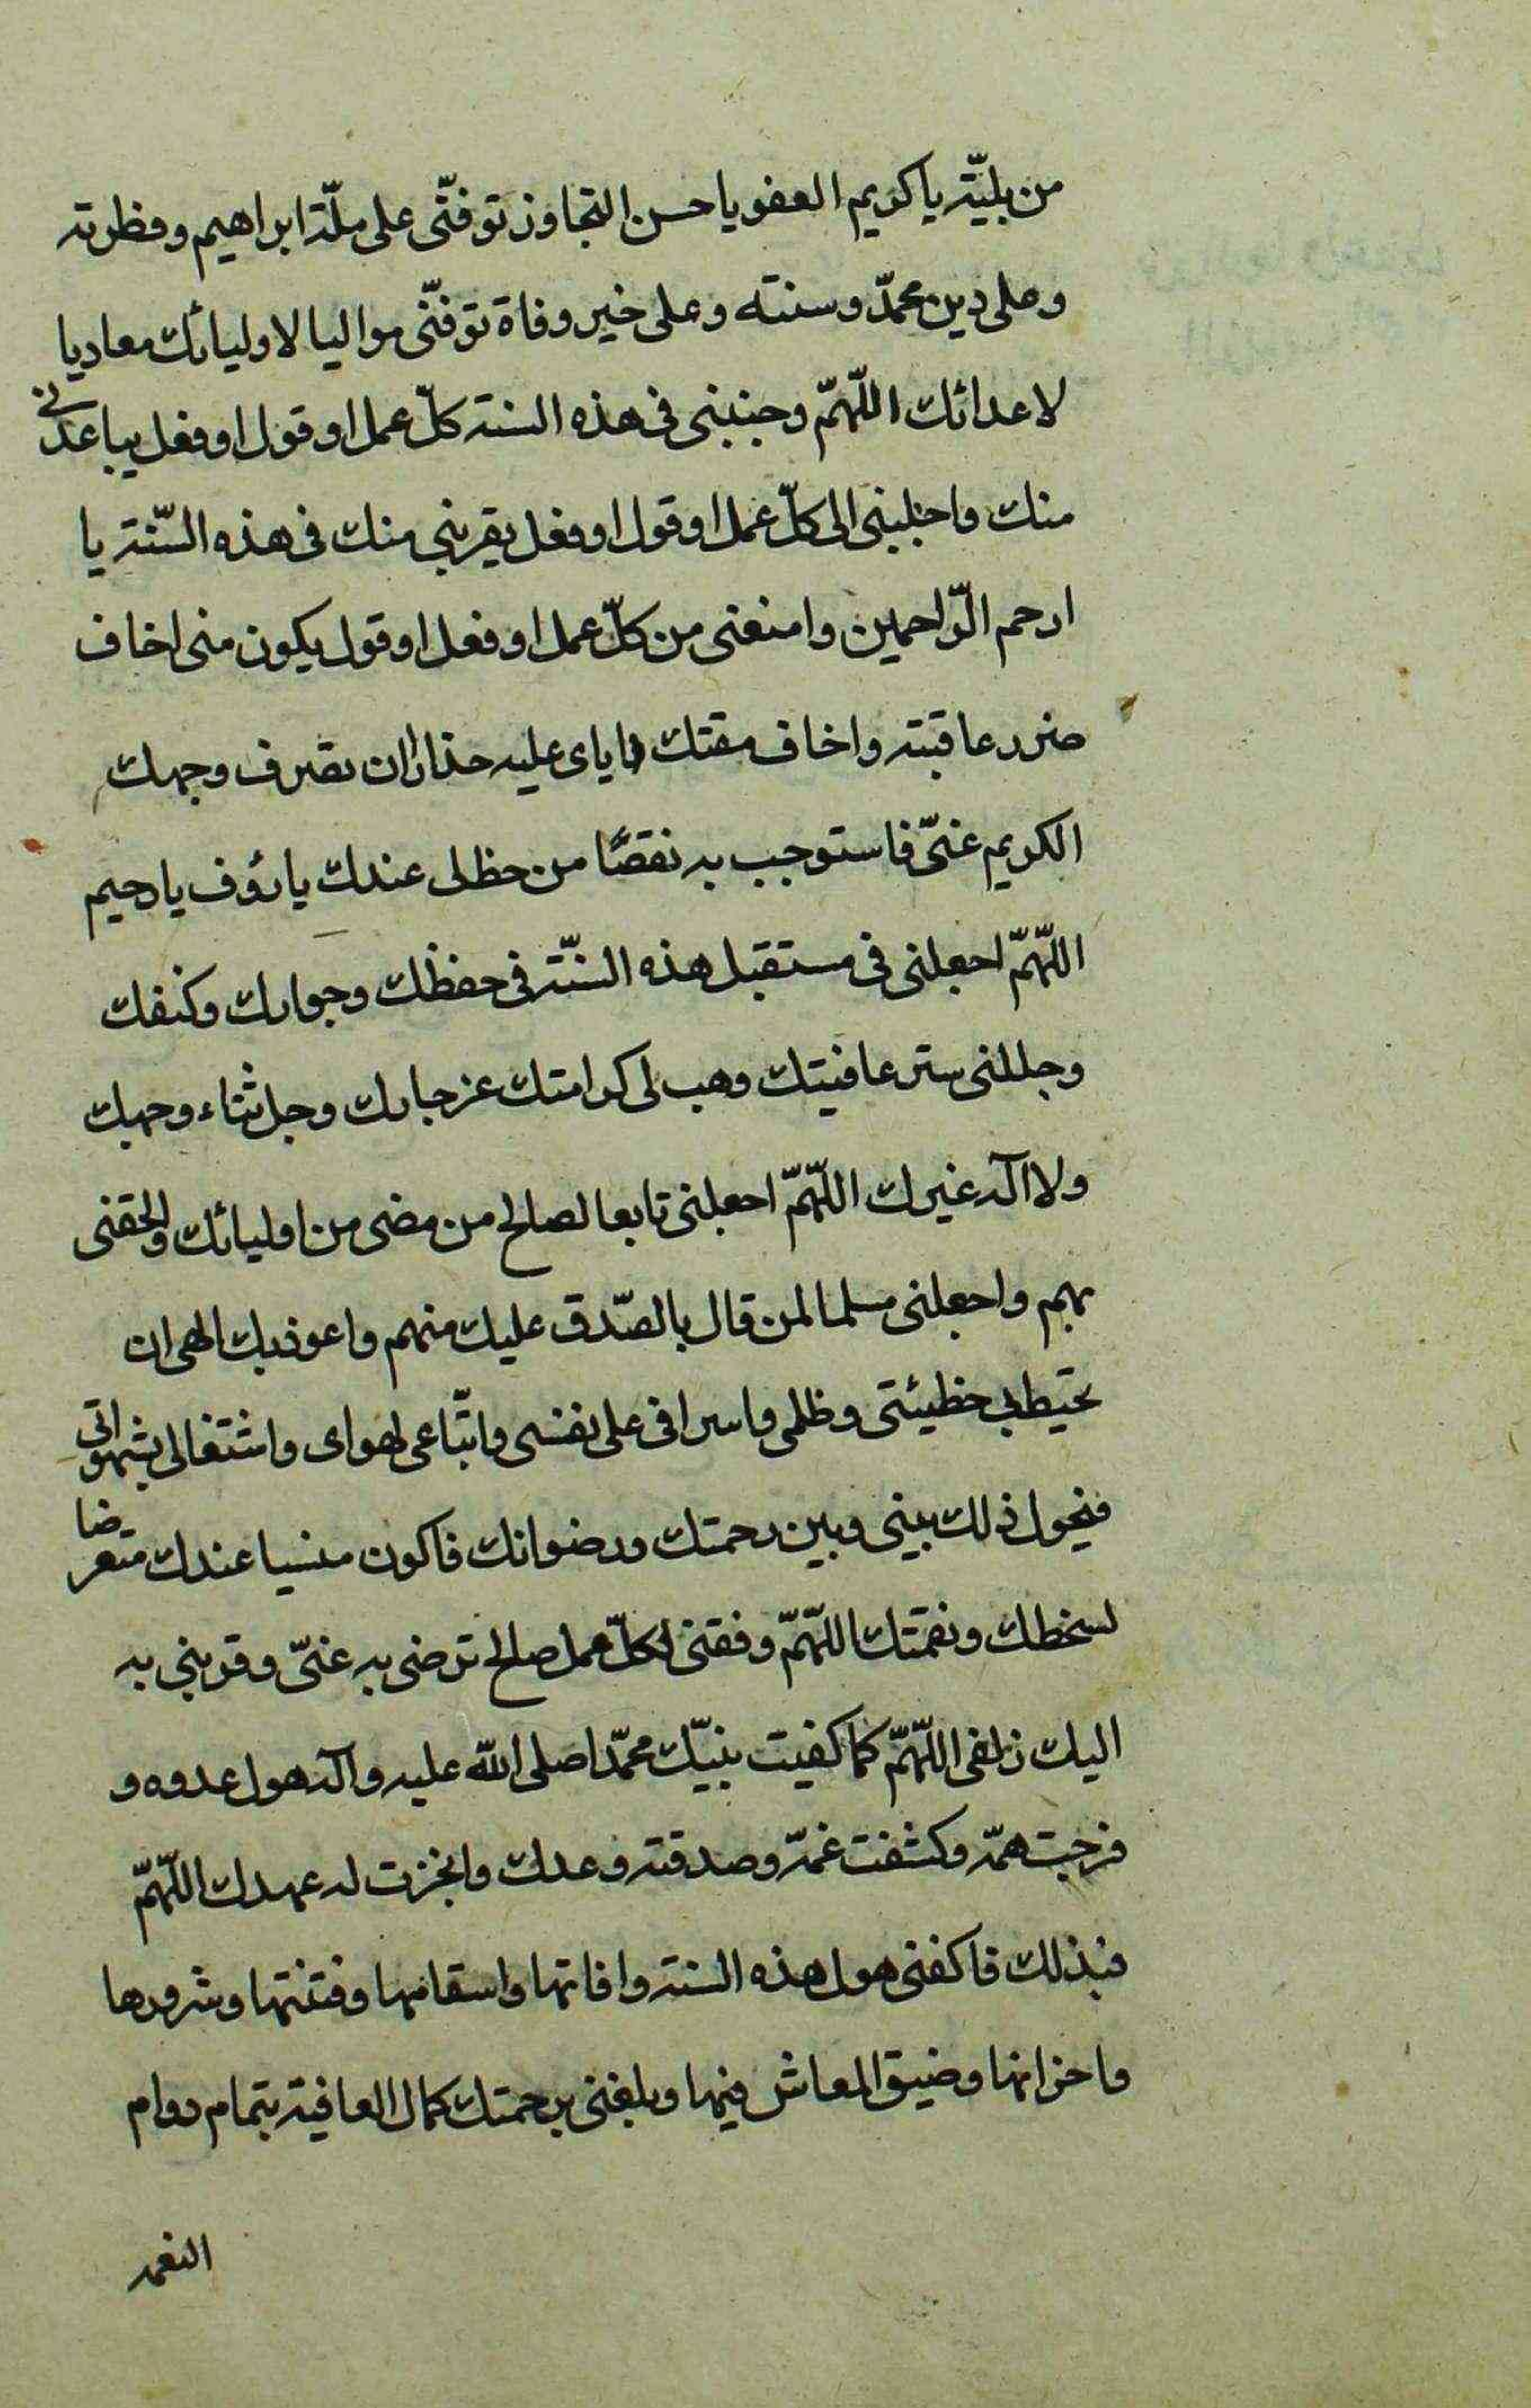 من بليّة يا كريم العفو يا حسن التجاوز توفّنى على ملّة ابراهيم وفطرته
وعلى دين محمّد وسنته وعلى خير وفاة توفّنى مواليا لاوليائك معاديا
لاعدائك اللّهمّ وجنبنى فى هذه السنة كلّ عمل او قول او فعل يباعدنى
منك واجلبنى الى كلّ عمل او قول او فعل يقربنى منك فى هذه السّنة يا
ارحم الرّاحمين وامنعنى من كلّ عمل او فعل او قول يكون منى اخاف
ضرر عاقبته واخاف مقتك اياى عليه حذارا ان تصرف وجهك
الكريم عنّى فاستوجب به نقصًا من حظ لى عندك يا رؤف يا رحيم
اللّهمّ اجعلنى فى مستقبل هذه السّنة فى حفظك وجوارك وكنفك
وجللنى ستر عافيتك وهب لى كرامتك عز جارك وجل ثناء وجهك
ولا اله غيرك اللّهمّ اجعلنى تابعا لصالح من مضى من اوليائك والحقنى
بهم واجعلنى مسلما لمن قال بالصّدق عليك منهم واعوذ بك الهى ان
تحيط بى خطيئتى وظلمى واسرافى على نفسى واتّباعى لهواى واشتغالى بشهواتى
فيحول ذلك بينى وبين رحمتك ورضوانك فاكون منسيا عندك متعرضا
لسخطك ونقمتك اللّهمّ وفقنى لكلّ عمل صالح ترضى به عنّى وقربنى به
اليك زلفى اللّهمّ كما كفيت نبيّك محمّدا صلى الله عليه وآله هول عدوه و
فرجت همّه وكشفت غمّه وصدقته وعدك وانجزت له عهدك اللّهمّ
فبذلك فاكفنى هول هذه السنة وافاتها واسقامها وفتنتها وشرورها
واحزانها وضيق المعاش فيها وبلغنى برحمتك كمال العافية بتمام دوام
النعمه